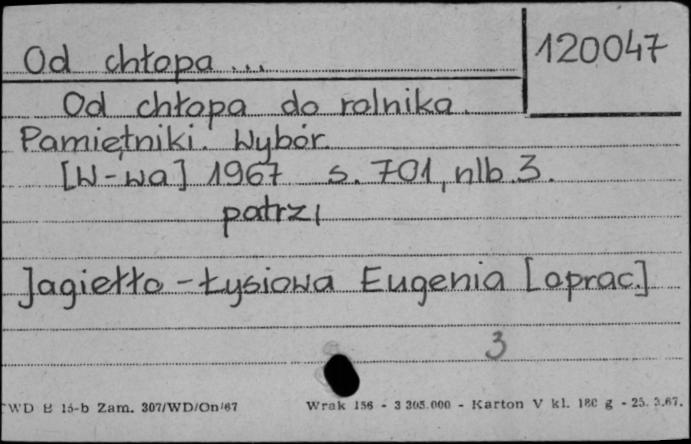 Od chłopa...
120047
Od chłopa do rolnika.
Pamiętniki. Wybór.
[W-wa] 1967 s. 701, nlb. 3.
patrz
Jagiełło-Łysiowa Eugenia [oprac.]
3
WD B 15-b Zam. 307/WD/On/67 Wrak 156 - 3 305.000 - Karton V kl. 180 g - 25.3.67.